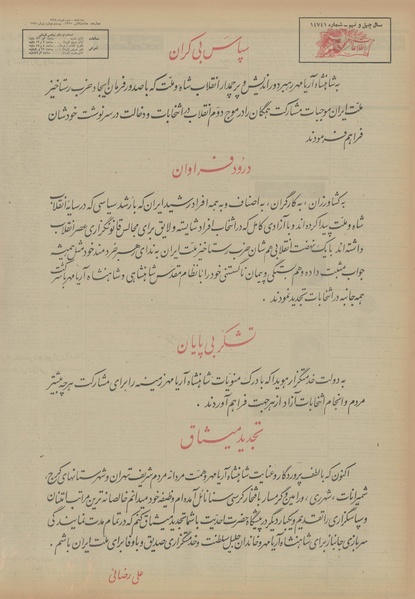 سال چهل و نهم - شماره ۱۴۷۴۱
اطلاعات
سپاس بی کران
به شاهنشاه آریامهر رهبر دوراندیش و پرچمدار انقلاب شاه و ملت که با صدور فرمان ایجاد حزب رستاخیز
ملت ایران موجبات مشارکت همگان را در موج دوم انقلاب در انتخابات و دخالت در سرنوشت خودشان
فراهم فرمودند
درود فراوان
به کشاورزان، به کارگران، به اصناف و به همه افراد رشید ایران که با رشد سیاسی که در سایه انقلاب
شاه و ملت پیدا کرده‌اند و با آزادی کامل که در انتخاب افراد شایسته و لایق برای مجالس قانونگزاری عصر انقلاب
داشته‌اند با یک نهضت انقلابی هم‌شان حزب رستاخیز ملت ایران به ندای رهبر خردمند خودشان همیشه
جواب مثبت داده و همبستگی و پیمان ناگسستنی خود را با نظام مقدس شاهنشاهی و شاهنشاه آریامهر با شرکت
همه جانبه در انتخابات تجدید نمودند.
تشکر بی پایان
به دولت خدمتگزار هویدا که با درک منویات شاهنشاه آریامهر زمینه را برای مشارکت هر چه بیشتر
مردم و انجام انتخابات آزاد از هر جهت فراهم آوردند.
تجدید میثاق
اکنون که با لطف پروردگار و عنایت شاهنشاه آریامهر و همت مردانه مردم شریف تهران و شهرستانهای کرج،
شمیرانات، شهرری، ورامین و گرمسار با افتخار کرسی سنا نائل آمده‌ام وظیفه خود میدانم خالصانه‌ترین مراتب امتنان
و سپاسگزاری را تقدیم و یکبار دیگر در پیشگاه حضرت احدیت با شما تجدید میثاق کنم که در تمام مدت نمایندگی
سربازی جانباز برای شاهنشاه آریامهر و خاندان جلیل سلطنت و خدمتگزاری صدیق و باوفا برای ملت ایران باشم.
علی رضائی